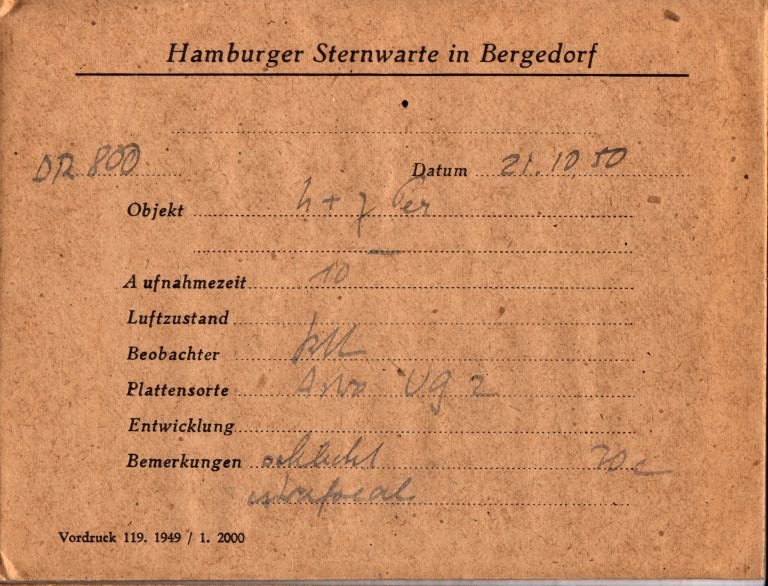 Hamburger Sternwarte in Bergedorf
DR 800
Datum 21.10.50
Objekt h + χ Per
Aufnahmezeit 10
Luftzustand
Beobachter
Plattensorte UG 2
Entwicklung
Bemerkungen schlecht
intrafocal
Vordruck 119. 1949 / 1. 2000